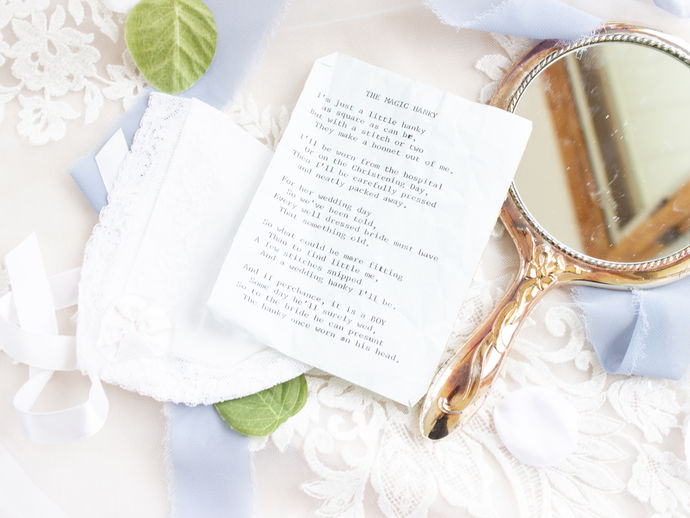 THE MAGIC HANKY
I'm just a little hanky
as square as can be.
But with a stitch or two
They make a bonnet out of me.
I'll be worn from the hospital
Or on the Christening Day.
Then I'll be carefully pressed
and neatly packed away.
For her wedding day
So we've been told,
Every well dressed bride must have
That something old.
So what could be more fitting
Than to find little me,
A few stitches snipped
And a wedding hanky I'll be.
And if perchance, it is a BOY
Some day he'll surely wed,
So to the bride he can present
The hanky once worn on his head.